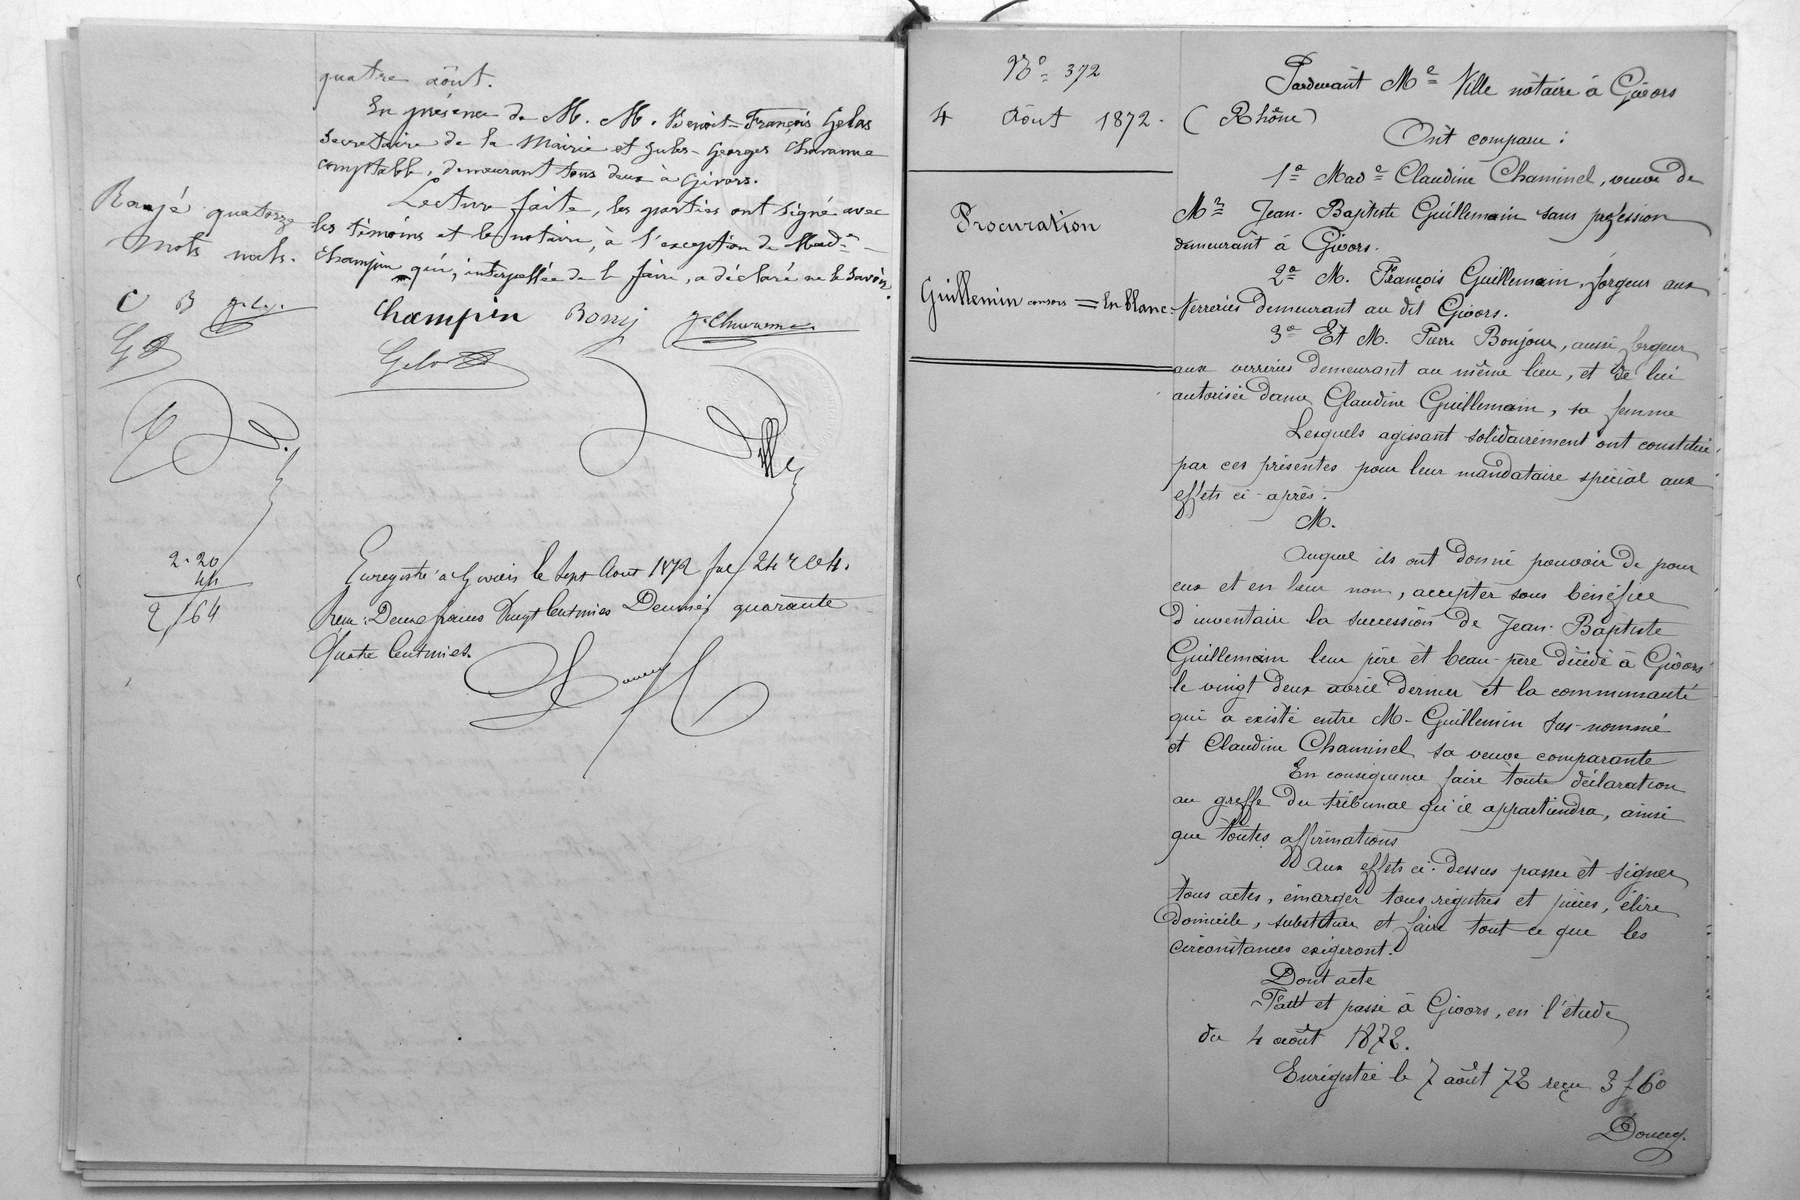 quatre août.
En présence de M. M. Benoit-François Gelas
Secretaire de la Mairie et Jules-Georges Chavanne
comptable, demeurant tous deux à Givors.
Lecture faite, les parties ont signé avec
les témoins et le notaire, à l'exception de Made
Champin qui, interpellée de le faire, a déclaré ne le savoir.
Rayé quatorze
mots nuls.
C B
Champin Bony J. Chavanne
Gelas
Ville
2.20
44
2/64
Enregistré à Givors le Sept Août 1872 fol 24 r c 4.
Reçu: Deux francs Vingt Centimes Decimes quarante
Quatre Centimes.
Doucey
No 372
4 Août 1872.
Procuration
Guillemin consors = En blanc
Pardevant Me Ville notaire à Givors
(Rhône)
Ont comparu :
1o Made Claudine Chaminel, veuve de
Mr Jean-Baptiste Guillemain sans profession
demeurant à Givors.
2o M. François Guillemain, forgeur aux
Verreries demeurant au dit Givors.
3o Et M. Pierre Bonjour, aussi forgeur
aux verreries demeurant au même lieu, et de lui
autorisée dame Claudine Guillemain, sa femme
Lesquels agissant solidairement ont constitué
par ces présentes pour leur mandataire spécial aux
effets ci-après.
M.
Auquel ils ont donné pouvoir de pour
eux et en leur nom, accepter sous bénéfice
d'inventaire la succession de Jean-Baptiste
Guillemain leur père et beau-père décédé à Givors
le vingt deux avril dernier et la communauté
qui a existé entre M- Guillemin sus-nommé
et Claudine Chaminel sa veuve comparante
En conséquence faire toute déclaration
au greffe du tribunal qu'il appartiendra, ainsi
que toutes affirmations
Aux effets ci-dessus passer et signer
tous actes, émarger tous registres et pièces, élire
domicile, substituer et faire tout ce que les
circonstances exigeront.
Dont acte
Fait et passé à Givors, en l'étude
du 4 août 1872.
Enregistré le 7 août 72 reçu 3 f 60
Doucey.